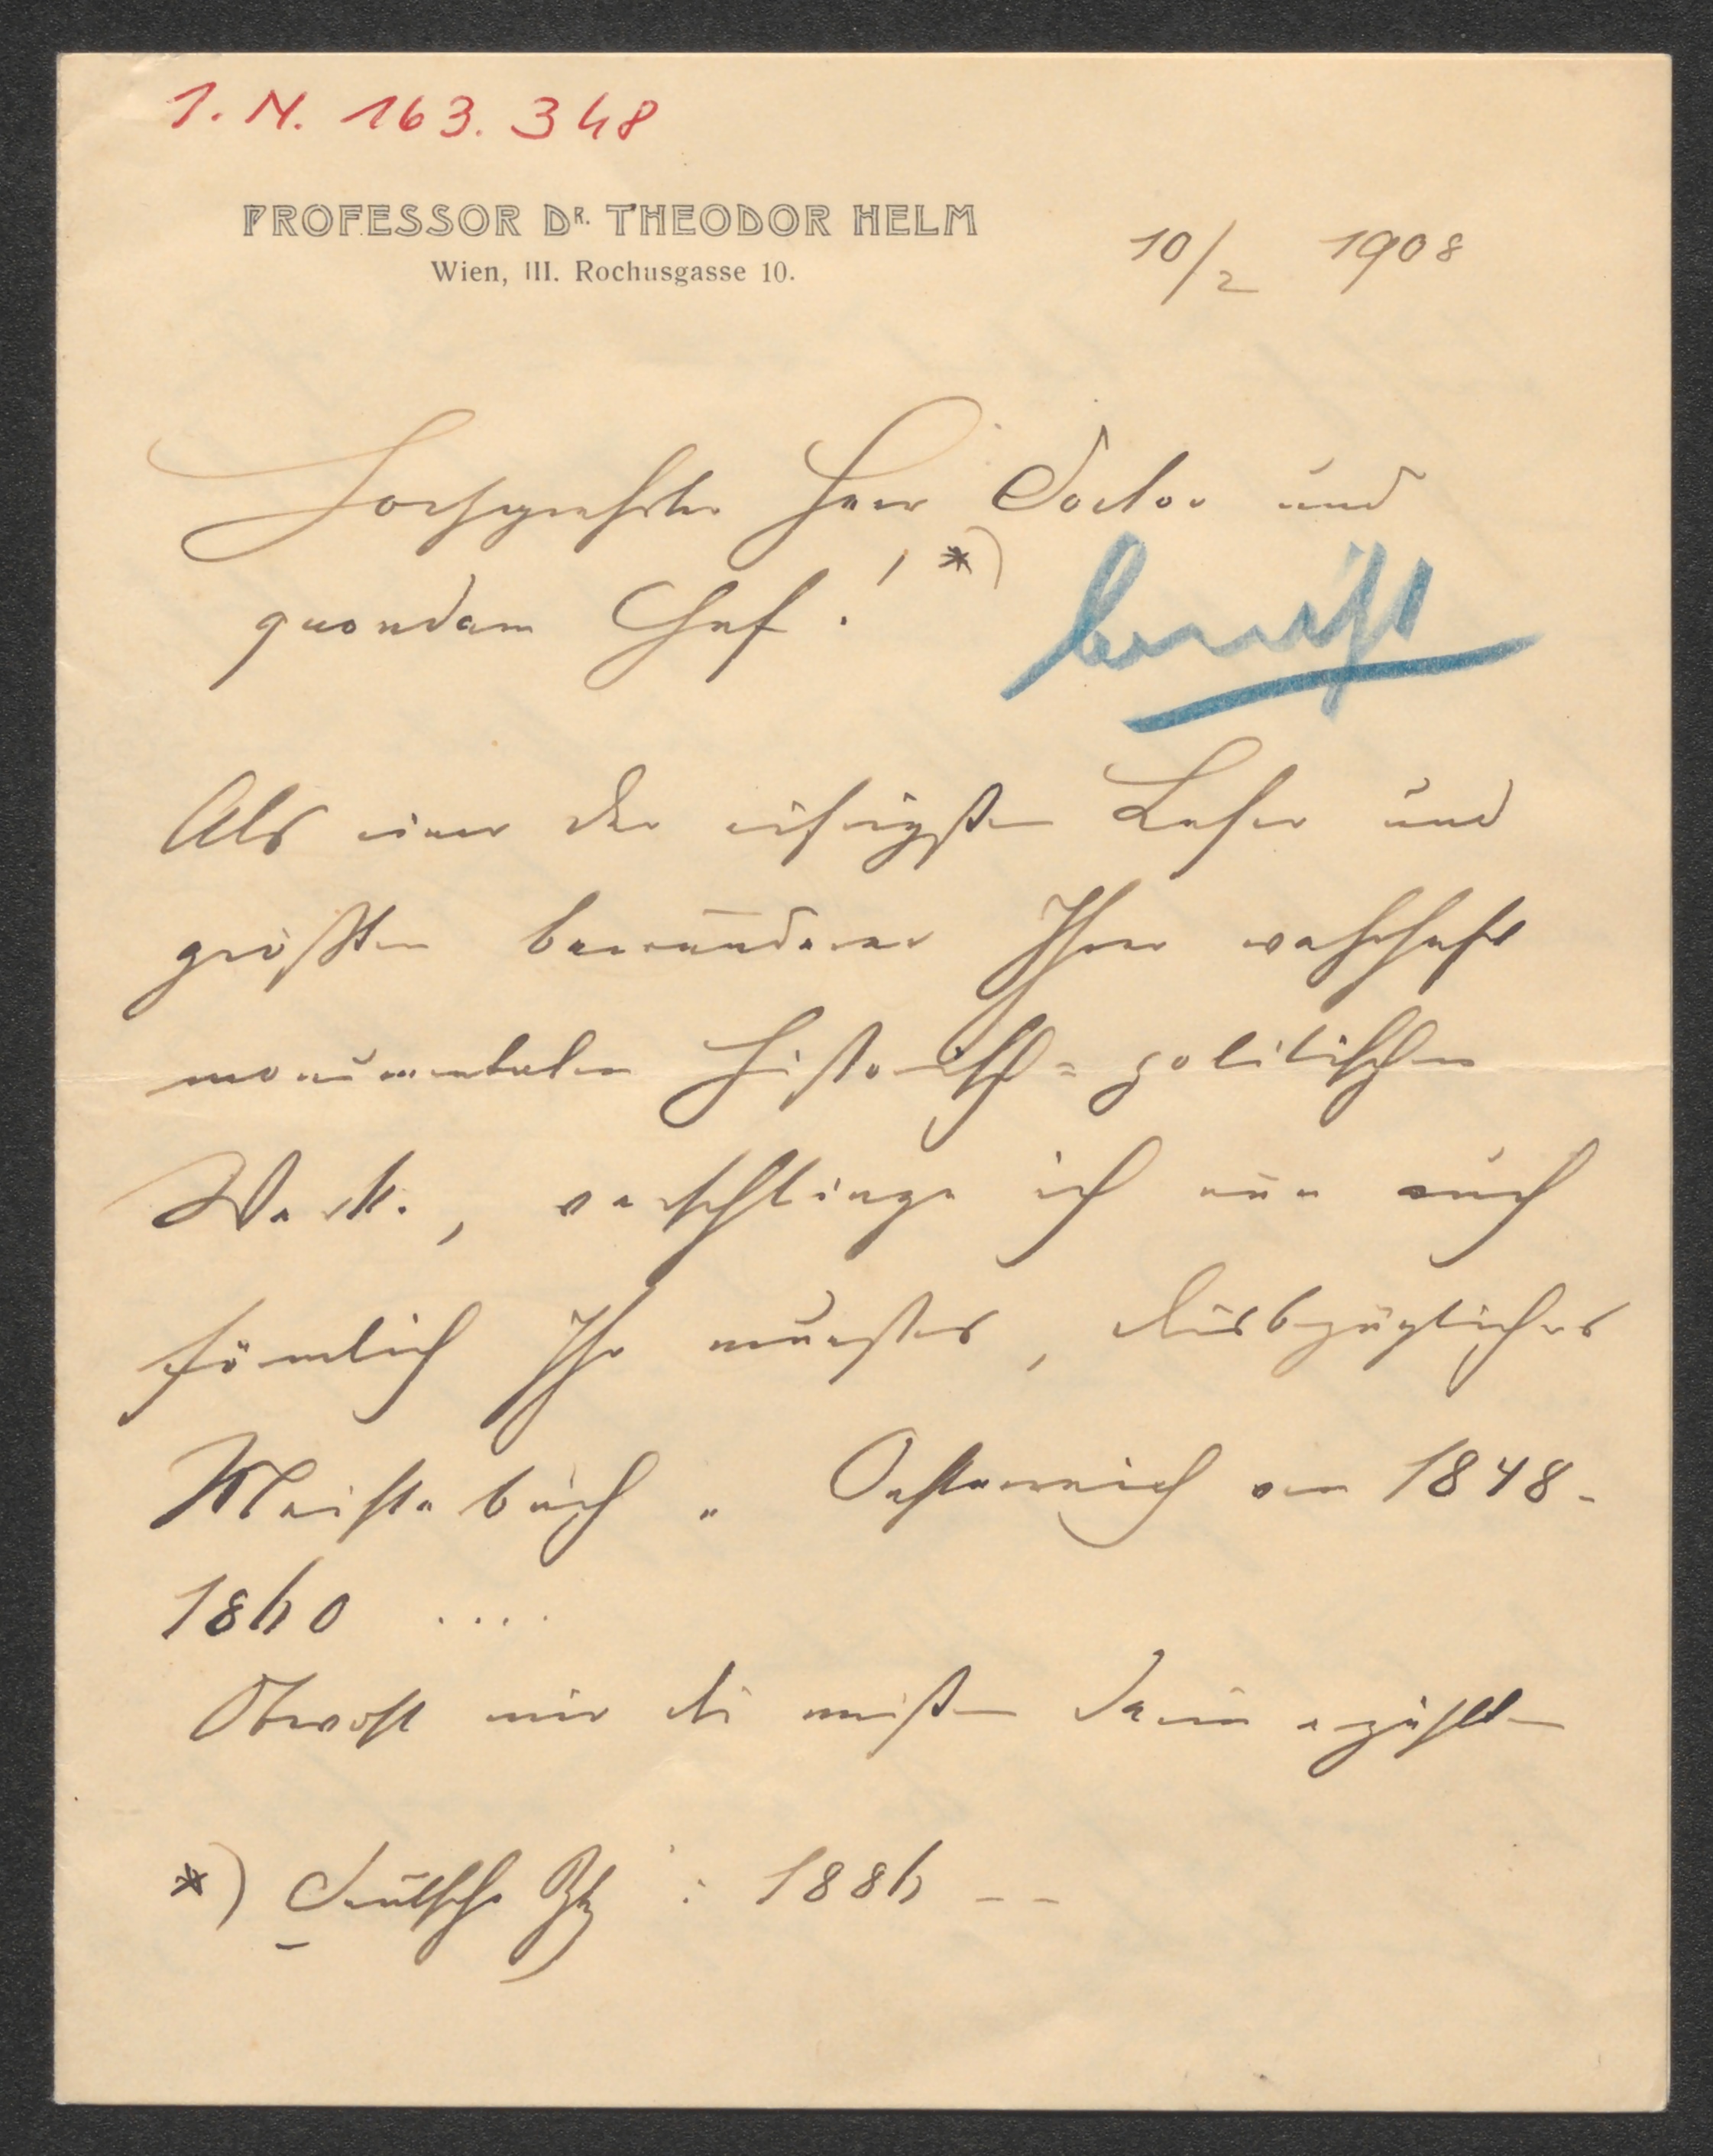 I. N. 163.348
PROFESSOR DR. THEODOR HELM
Wien, III. Rochusgasse 10.
10/2 1908
Hochgeehrter Herr Doctor und
quondam Chef! *)
Als einer der eifrigsten Leser und
größten Bewunderer Ihrer wahrhaft
monumentalen historisch-politischen
Werke, verschlinge ich nun auch
förmlich Ihr neuestes, diesbezügliches
Meisterbuch „Oesterreich von 1848-
1860 ....
Obwohl mir die meisten darin erzählten
*) Deutsche Ztg : 1886 --